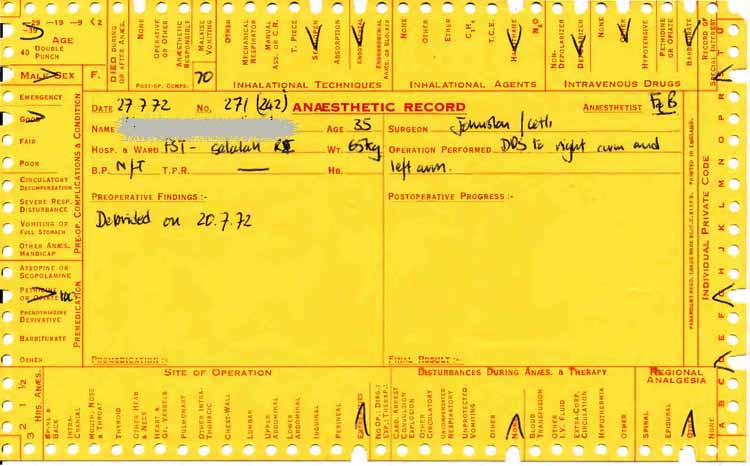 39
29 –19 –9 <2
AGE
40 DOUBLE PUNCH
MALE SEX F.
DIED DURING OR AFTER ANÆS.
OPERATIVE OR OTHER
ANÆSTHETIC RESPONSIBLE
MALAISE VOMITING
OTHER
POST-OP. COMPS.
70
MECHANICAL RESPIRATOR
MANUAL ASS. OR C.R.
T. PIECE
SEMI-OPEN
ABSORPTION
ENDOTRACHEAL
ENDOBRONCHIAL ANÆS. OR BLOCKER
INHALATIONAL TECHNIQUES
NONE
OTHER
ETHER
C3H6
T.C.E.
HALOTHANE
N2O
INHALATIONAL AGENTS
NON-DEPOLARIZER
DEPOLARIZER
NONE
OTHER
HYPOTENSIVE
PETHIDINE OR OPIATE
BARBITURATE
INTRAVENOUS DRUGS
RECORD OF SPECIAL INTEREST
EMERGENCY
GOOD
FAIR
POOR
CIRCULATORY DECOMPENSATION
SEVERE RESP. DISTURBANCE
VOMITING OR FULL STOMACH
OTHER ANÆS. HANDICAP
PRE-OP. COMPLICATIONS & CONDITION
ATROPINE OR SCOPOLAMINE
PETHIDINE OR OPIATE 100
PHENOTHIAZINE DERIVATIVE
BARBITURATE
OTHER
PREMEDICATION
DATE 27.7.72 NO. 271 (242) ANÆSTHETIC RECORD ANÆSTHETIST
NAME AGE 35 SURGEON Johnston /
HOSP. & WARD FST – Salalah WT. 65kg OPERATION PERFORMED DPS to right arm and
B.P. N/T T.P.R. — HB. left arm.
PREOPERATIVE FINDINGS:- POSTOPERATIVE PROGRESS:-
Debrided on 20.7.72
PREMEDICATION:- FINAL RESULT:-
PRINTED IN ENGLAND
INDIVIDUAL PRIVATE CODE
A B C D E F G H J K L M N O P R
3 2 1 ½
HRS. ANÆS.
SITE OF OPERATION
SPINE & BACK
INTRA-CRANIAL
MOUTH, NOSE & THROAT
THYROID
OTHER HEAD & NECK
HEART & GT. VESSELS
PULMONARY
OTHER INTRA-THORACIC
CHEST-WALL
LUMBAR
UPPER ABDOMINAL
LOWER ABDOMINAL
INGUINAL
PERINEAL
EXTREMITIES
DISTURBANCES DURING ANÆS. & THERAPY
NO OP., DIAG., EXP., THERAP.
CARD. ARREST CONVULSION EXPLOSION
OTHER CIRCULATORY
UNCOMPENSATED RESPIRATORY
UNPROTECTED VOMITING
OTHER
NONE
BLOOD TRANSFUSION
OTHER I.V. FLUID
EXTRA-CORP. CIRCULATION
HYPOTHERMIA
OTHER
REGIONAL ANALGESIA
SPINAL
EPIDURAL
OTHER
NONE